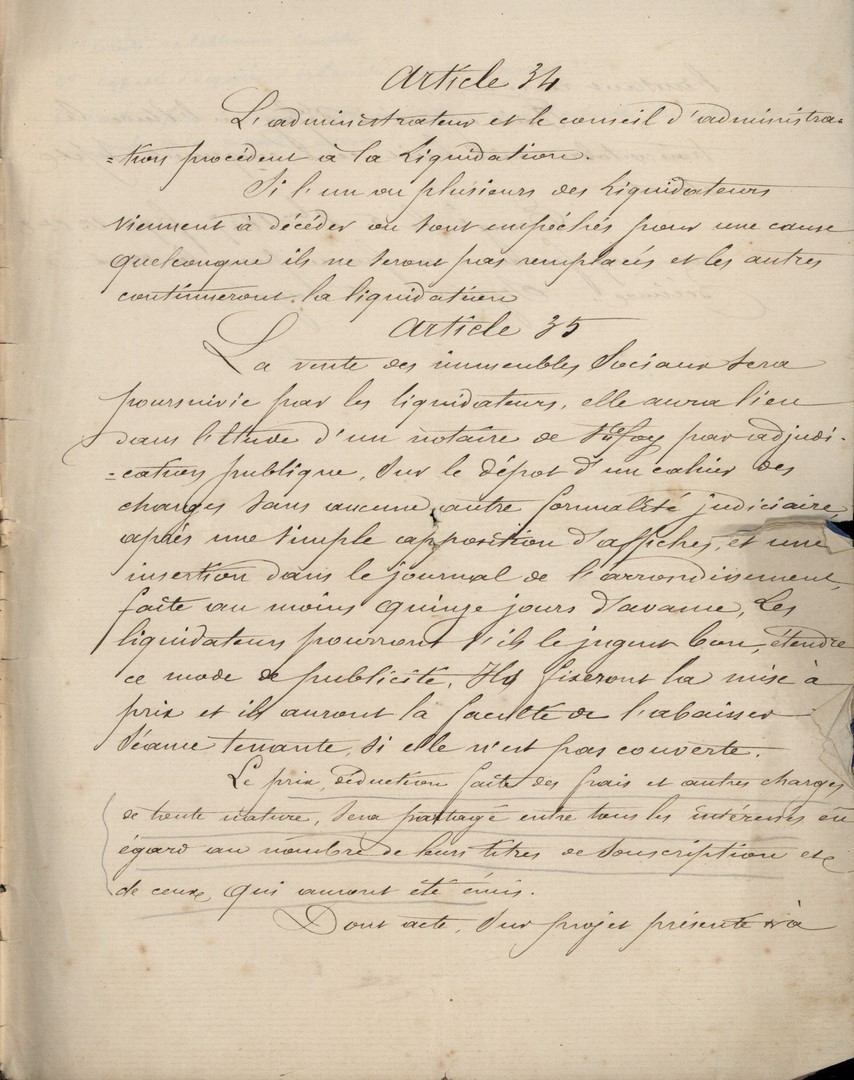 Article 34
L'administrateur et le conseil d'administra=
=tion procèdent à la Liquidation.
Si l'un ou plusieurs des Liquidateurs
viennent à décéder ou sont empéchés pour une cause
quelconque ils ne seront pas remplacés et les autres
continueront la liquidation
Article 35
La vente des immeubles Sociaux sera
poursuivie par les liquidateurs, elle aura lieu
dans l'étude d'un notaire de Ste foy par adjudi-
=cation publique, Sur le dépot d'un cahier des
charges sans aucune autre formalité judiciaire,
après une simple apposition d'affiches, et une
insertion dans le journal de l'arrondissement,
faite au moins quinze jours d'avance, Les
liquidateurs pourront s'ils le jugent bon, étendre
ce mode de publicité. Ils fixeront la mise à
prix et ils auront la faculté de l'abaisser
Séance tenante, si elle n'est pas couverte.
Le prix, déduction faite des frais et autres charges
de toute nature, sera partagé entre tous les intéressés eu
égard au nombre de leurs titres de Souscription et
de ceux, qui auront été émis.
Dont acte, Sur projet présenté à